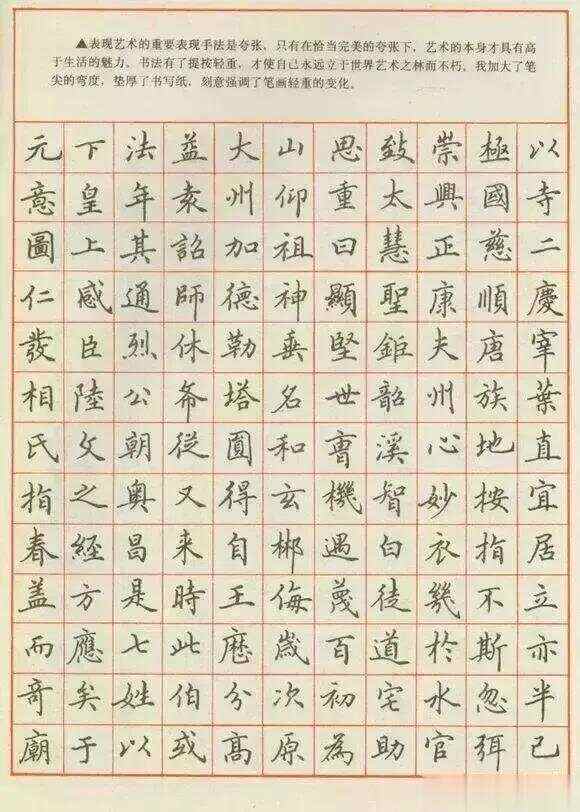 ▲表现艺术的重要表现手法是夸张，只有在恰当完美的夸张下，艺术的本身才具有高
于生活的魅力。书法有了提按轻重，才使自己永远立于世界艺术之林而不朽。我加大了笔
尖的弯度，垫厚了书写纸，刻意强调了笔画轻重的变化。
元下法益大山思致崇極以
意皇年袁州仰重太興國寺
圖上其詔加祖曰慧正慈二
仁感通師德神顯聖康順慶
發臣烈休勒垂堅鉅夫唐宰
相陸公希塔名世韶州族葉
氏文朝從圓和曹溪心地直
指之奥又得玄機智妙按宜
春經昌来自郴遇白衣指居
盖方是時王侮蔑徒幾不立
而應七此歷歲百道於斯亦
奇矣姓伯分次初宅水忽半
廟于以或高原為助官弭已